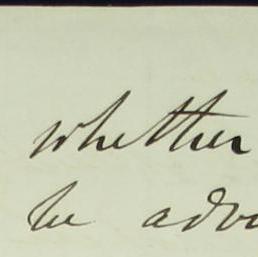 whether
be adv